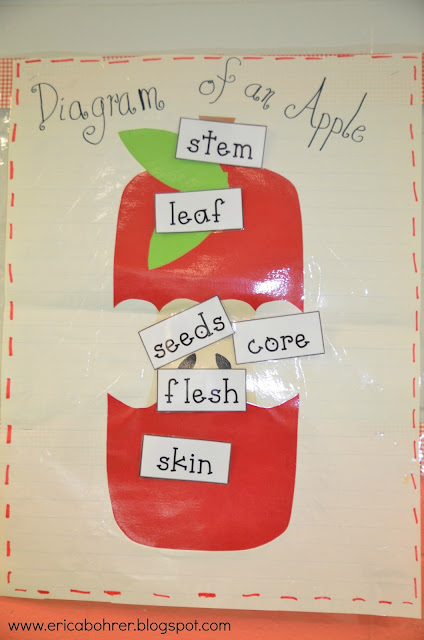 Diagram of an Apple
stem
leaf
seeds
core
flesh
skin
www.ericabohrer.blogspot.com